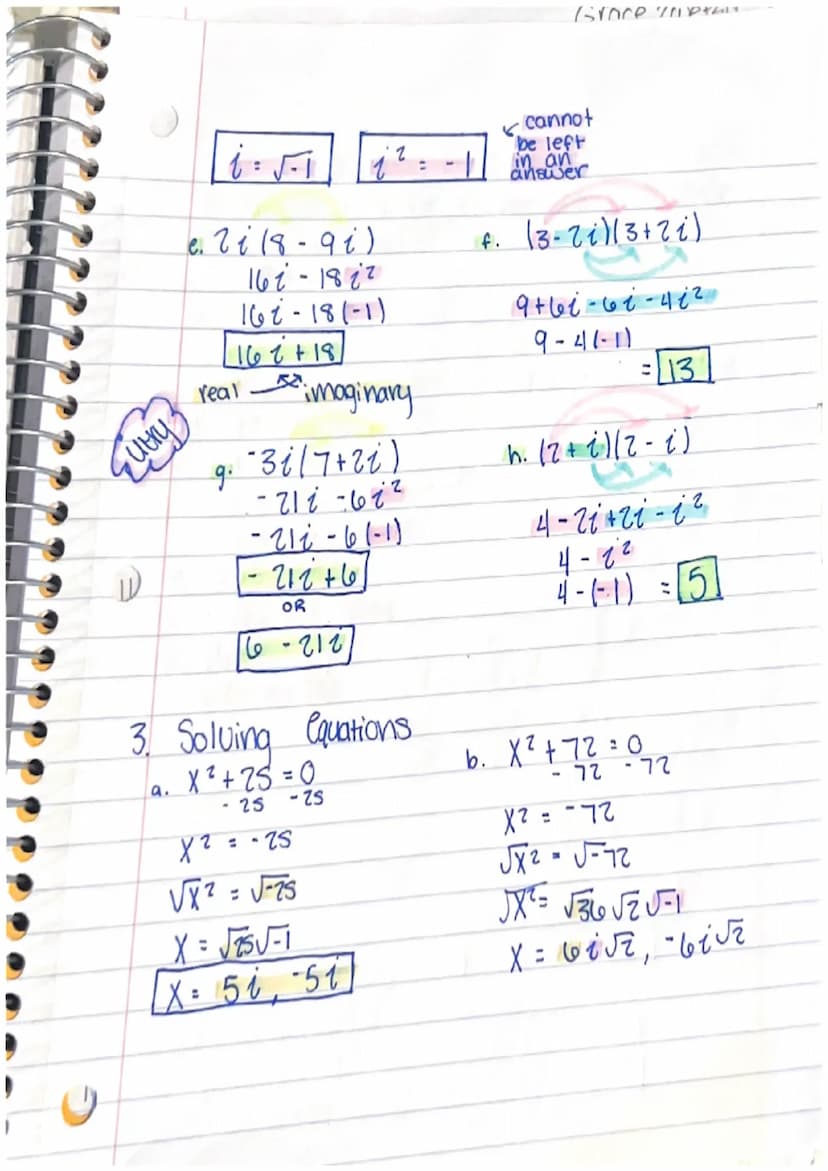 Grace
i = √-1
i² = -1
cannot
be left
in an
answer
e. 2i(8 - 9i)
16i - 18i²
16i - 18(-1)
16i + 18
real imaginary
f. (3-2i)(3+2i)
9+6i-6i-4i²
9 - 4(-1)
= 13
g. -3i(7+2i)
- 21i - 6i²
- 21i - 6(-1)
- 21i + 6
OR
6 - 21i
h. (2+i)(2-i)
4-2i+2i-i²
4 - i²
4-(-1) = 5
3. Solving Equations
a. x²+25 = 0
- 25 -25
x² = -25
√x² = √-25
x = √25√-1
x = 5i, -5i
b. x²+72 = 0
- 72 -72
x² = -72
√x² = √-72
√x² = √36√2√-1
x = 6i√2, -6i√2